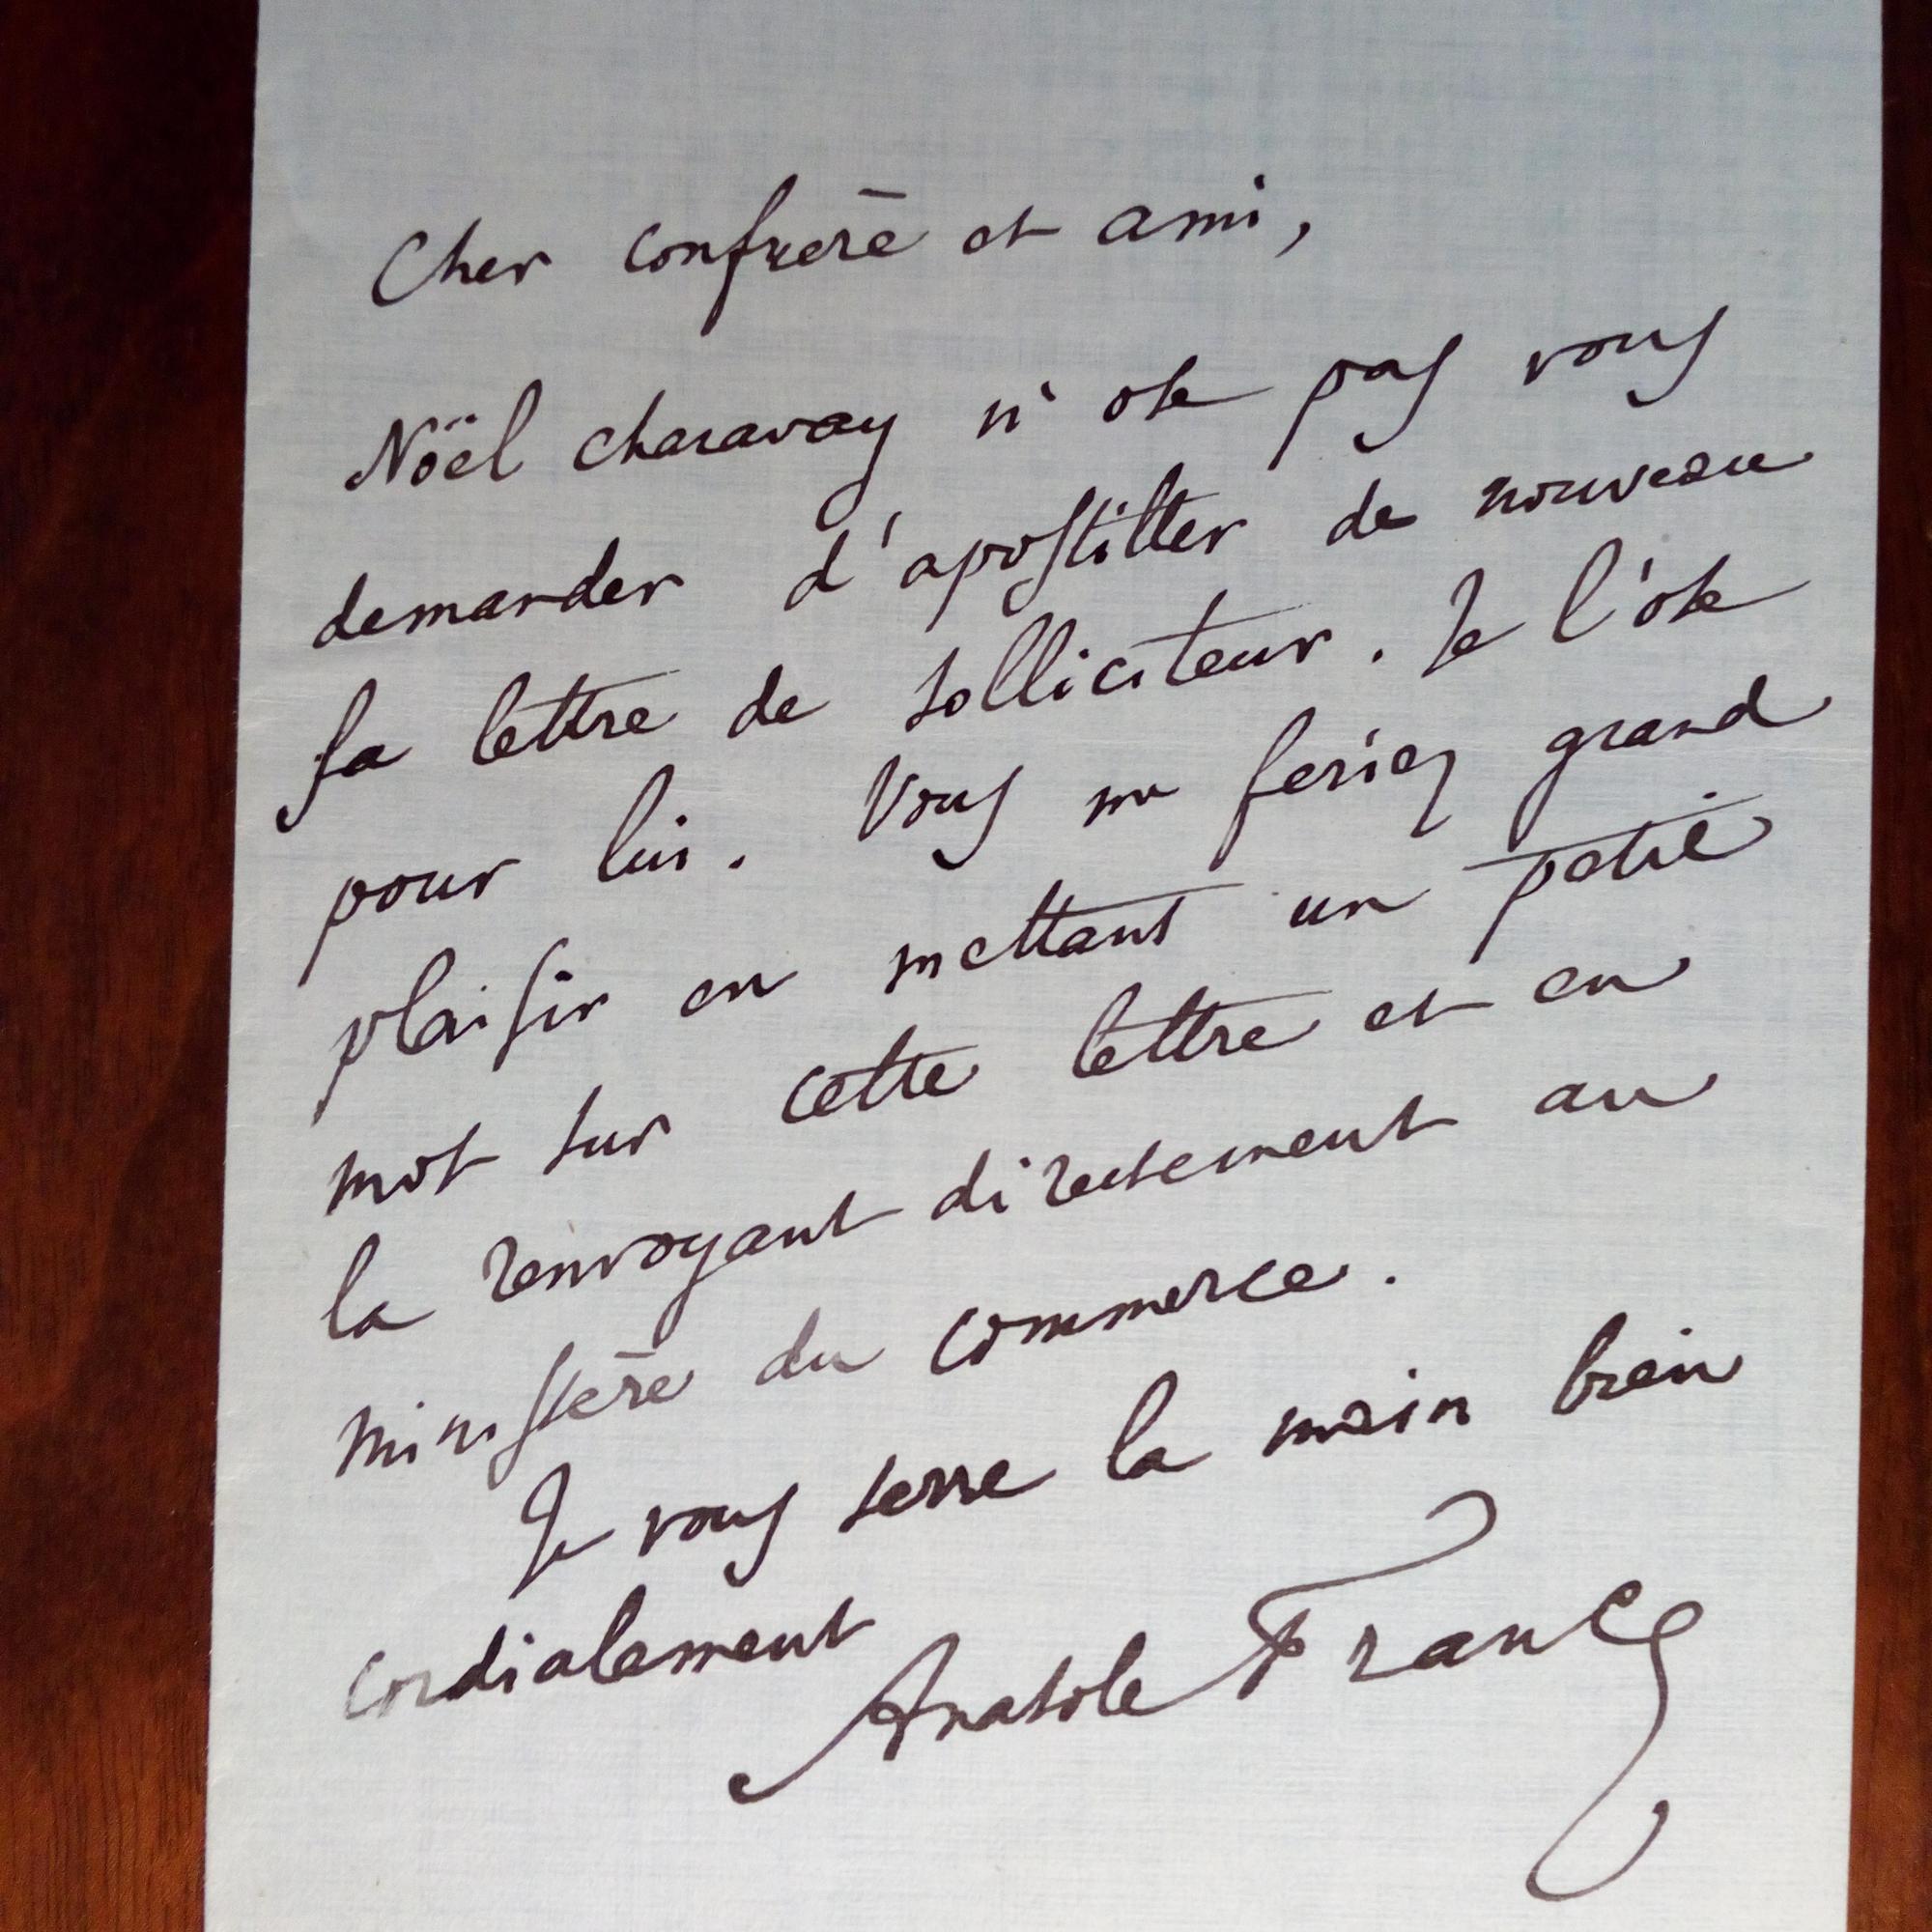 Cher confrère et ami,
Noël Charavay n'ose pas vous
demander d'apostiller de nouveau
sa lettre de solliciteur. Je l'ose
pour lui. Vous me feriez grand
plaisir en mettant un petit
mot sur cette lettre et en
la renvoyant directement au
ministère du commerce.
Je vous serre la main bien
cordialement
Anatole France